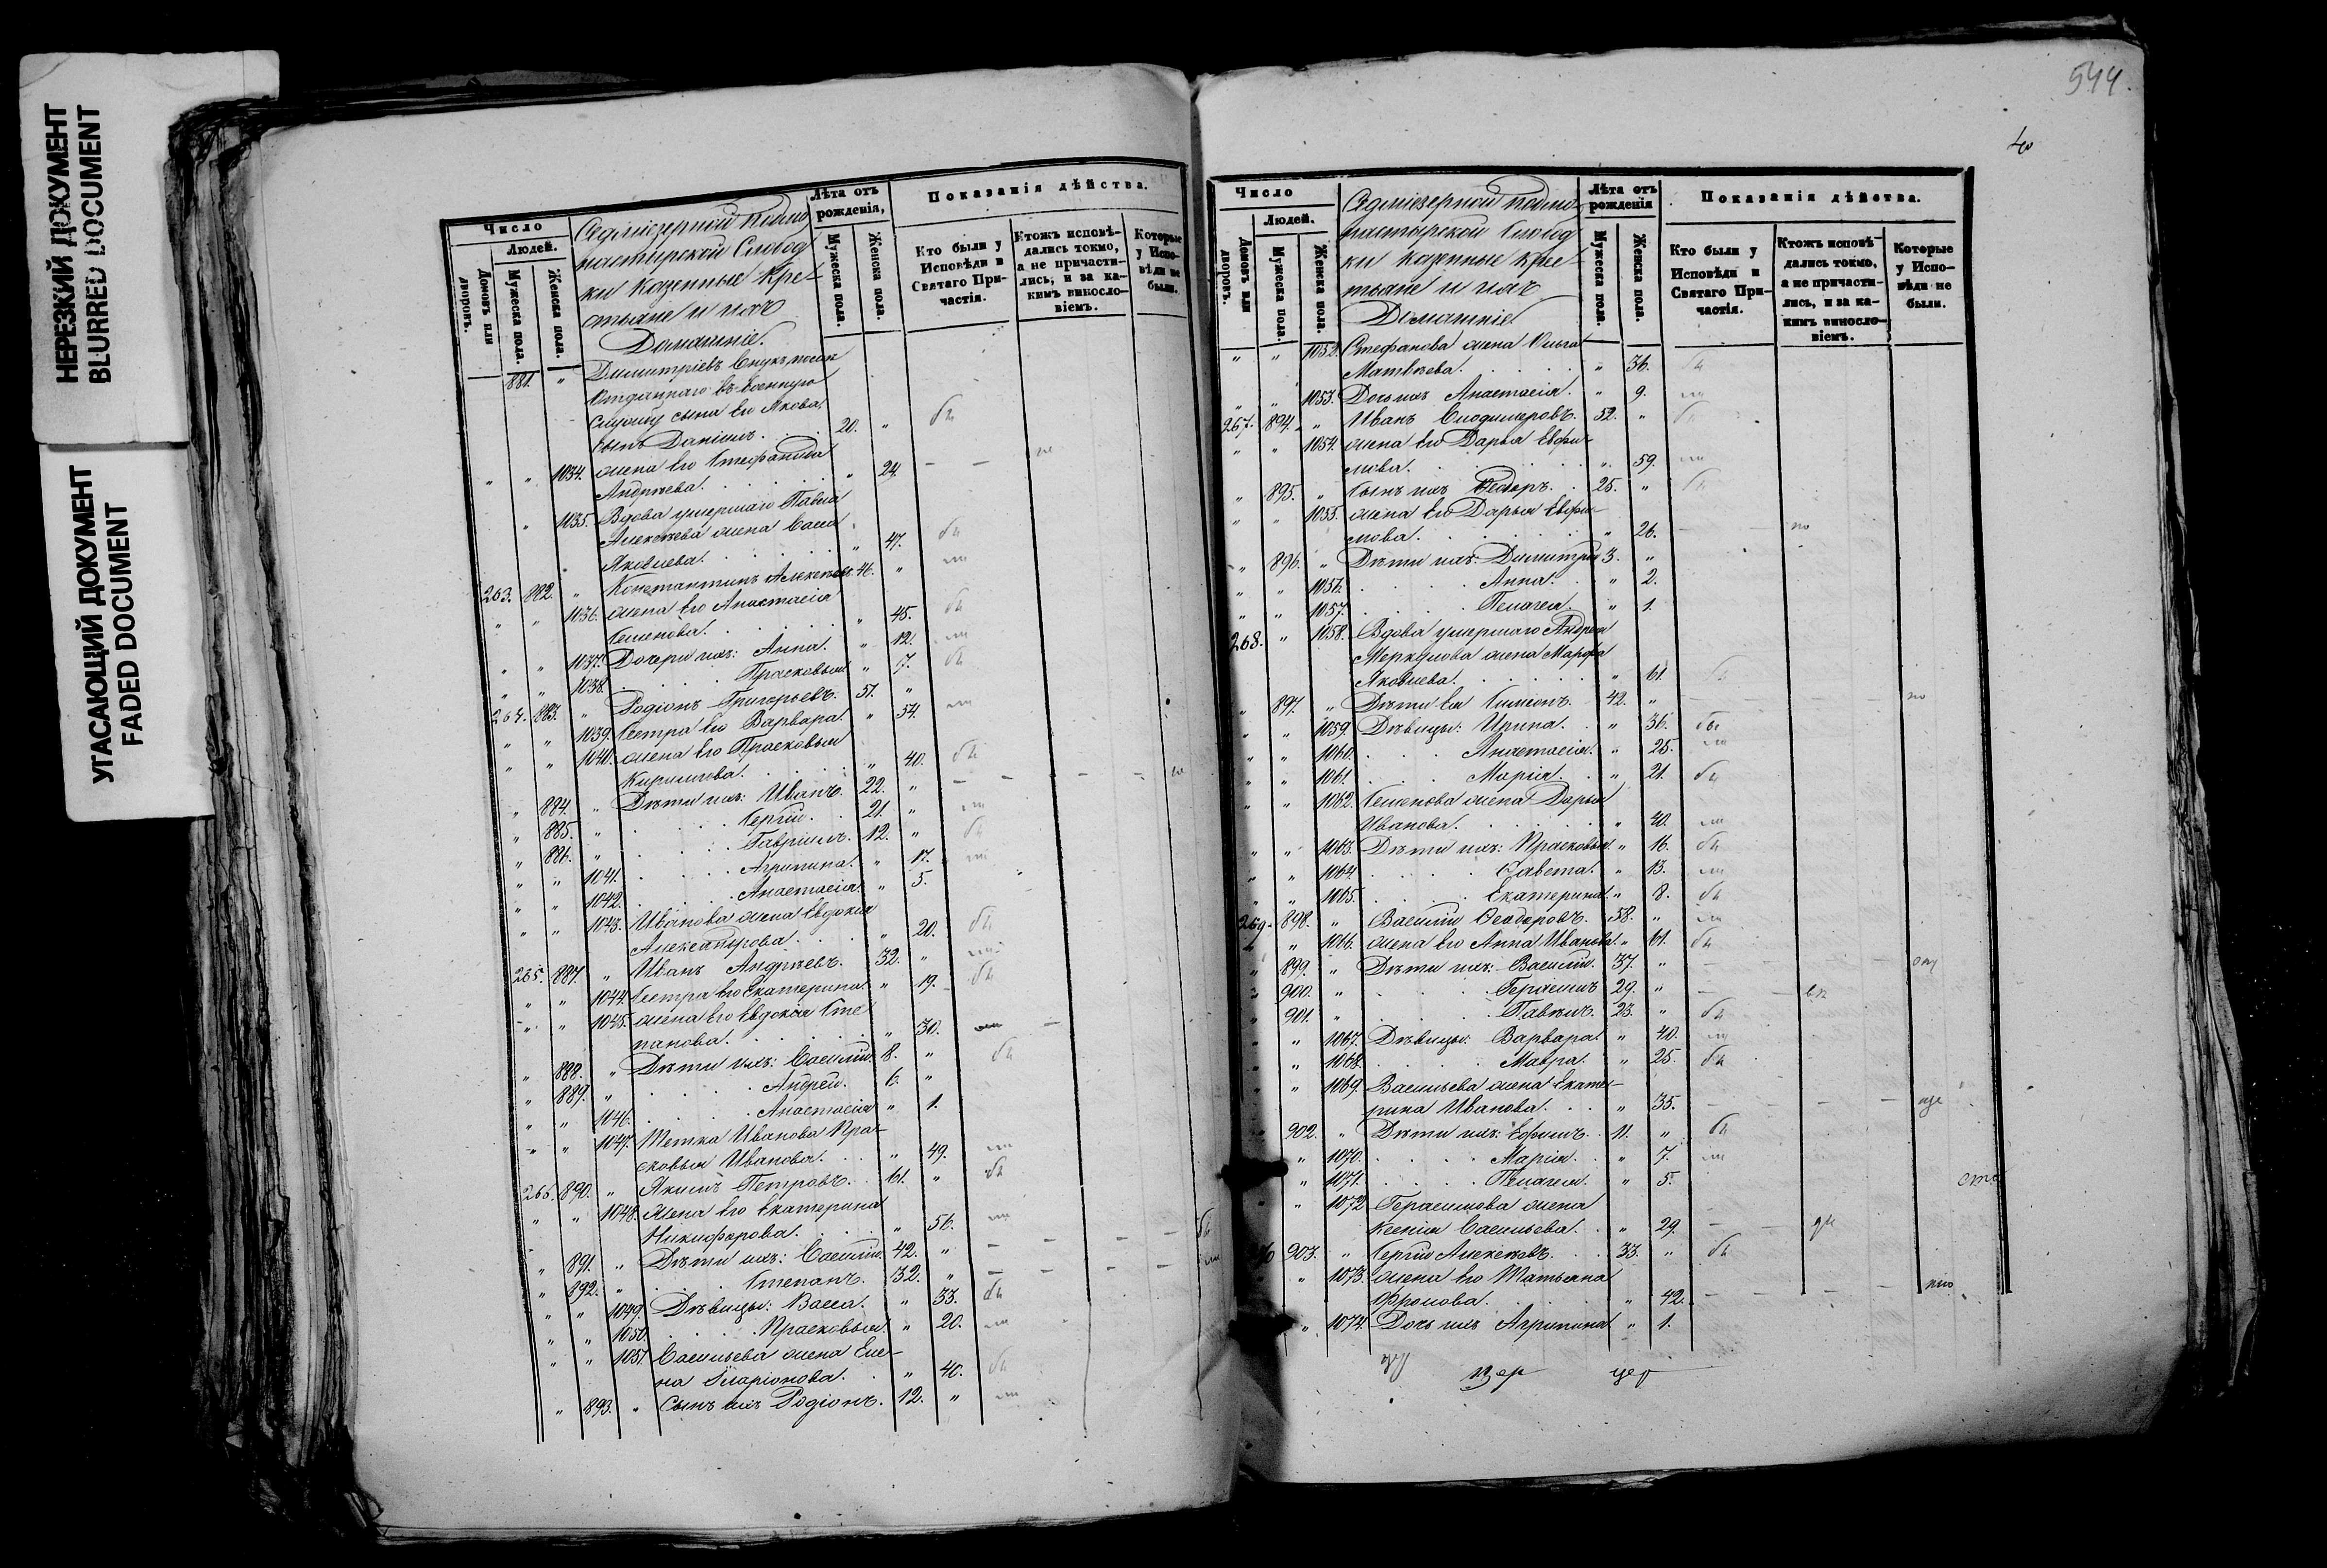 НЕРЕЗКИЙ ДОКУМЕНТ
BLURRED DOCUMENT
УГАСАЮЩИЙ ДОКУМЕНТ
FADED DOCUMENT
Число
Людей.
Домовъ или дворовъ.
Мужеска пола.
Женска пола.
Седміезерной подмо-
настырской Слобод
ки казенные кре-
стьяне и ихъ
Домашніе.
Лѣта отъ рожденія,
Мужеска пола.
Женска пола.
Показанія дѣйства.
Кто были у Исповѣди и Святаго Причастія.
Ктожъ исповѣ-
дались токмо,
а не причасти-
лись, и за ка-
кимъ винosло-
віемъ.
Которые у Испо-
вѣди не были.
881. " Димитріевъ внукъ после
отданнаго въ военную
службу сына его Якова,
сынъ Даніилъ. 20. " бы
" " 1034. жена его Стефанида
Андреева. " 24. — — не
" 1035. Вдова умершаго Павла
Алексѣева жена Васса
Яковлева. " 47. бы
263. 882. " Константинъ Алексѣевъ. 46. " ли
" " 1036. жена его Анастасія
Семенова. " 45. бы
" " 1037. Дочери ихъ: Анна. " 12. ли
" " 1038. Прасковья " 7. бы
264. 883. " Родіонъ Григорьевъ. 51. "
" " 1039. Сестра его Варвара. " 54. ли
" " 1040. жена его Прасковья
Кирилова. " 40. бы
" 884. " Дѣти ихъ: Иванъ. 22. " — — — — не
" 885. " Сергій. 21. " ли
" 886. " Гавріилъ. 12. " бы
" " 1041. Агрипина. " 17. ли
" " 1042. Анастасія. " 5.
" " 1043. Иванова жена Евдокія
Александрова. " 20. бы
265. 887. " Иванъ Андреевъ. 32. " ли
" " 1044. Сестра его Екатерина. " 19. бы
" " 1045. жена его Евдокія Сте
панова. " 30. —
" 888. " Дѣти ихъ: Василій. 8. " бы
" 889. " Андрей. 6. "
" " 1046. Анастасія " 1.
" " 1047. Тетка Иванова Пра-
сковья Иванова. " 49. ли
266. 890. " Якимъ Петровъ. 61. " бы
" " 1048. жена его Екатерина
Никифорова. " 56. ли
" 891. " Дѣти ихъ: Василій. 42. " — — — — бы
" 892. " Степанъ. 32. " — — — — ли
" " 1049. Дѣвицы: Васса. " 33. бы
" " 1050. Прасковья. " 20. ли
" " 1051. Васильева жена Еле-
на Иларіонова. " 40. бы
" 893. " Сынъ ихъ Родіонъ. 12. " ли
544.
40
Число
Людей.
Домовъ или дворовъ.
Мужеска пола.
Женска пола.
Седміезерной подмо-
настырской Слобод
ки казенные кре-
стьяне и ихъ
Домашніе
Лѣта отъ рожденія
Мужеска пола.
Женска пола.
Показанія дѣйства.
Кто были у Исповѣди и Святаго При-
частія.
Ктожъ исповѣ-
дались токмо,
а не причасти-
лись, и за ка-
кимъ винosло-
віемъ.
Которые у Испо-
вѣди не были.
" " 1052. Стефанова жена Ольга
Матвѣева. " 36. бы
" " 1053. Дочь ихъ Анастасія. " 9. ли
267. 894. " Иванъ 52. " бы
" " 1054. жена его Дарья Евфи-
мова. " 59. ли
" 895. " Сынъ ихъ Ѳеодоръ. 25. " бы
" " 1055. жена его Дарья Евфи-
мова. " 26. — по
" 896. " Дѣти ихъ: Димитрій 3. "
" " 1056. Анна. " 2.
" " 1057. Пелагея. " 1.
268. " 1058. Вдова умершаго Андрея
Меркулова жена Марфа
Яковлева. " 61. бы
" 897. " Дѣти ея Симеонъ. 42. " — — — по
" " 1059. Дѣвицы: Ирина. " 36. бы
" " 1060. Анастасія. " 25. ли
" " 1061. Марія. " 21. бы
" " 1062. Семенова жена Дарья
Иванова. " 40. ли
" " 1063. Дѣти ихъ: Прасковья. " 16. бы
" " 1064. Савета. " 13. ли
" " 1065. Екатерина. " 8. бы
269. 898. " Василій Ѳеодоровъ. 58. " ли
" " 1066. жена его Анна Иванова. " 61. бы
" 899. " Дѣти ихъ: Василій. 37. " — — —
" 900. " Герасимъ 29. " — —
" 901. " Павелъ. 23. " бы
" " 1067. Дѣвицы: Варвара. " 40. ли
" " 1068. Мавра. " 25. бы
" " 1069. Васильева жена Екате-
рина Иванова. " 35. — — —
902. " Дѣти ихъ: Ефимъ. 11. " бы
" 1070. Марія. " 7. ли
" 1071. Пелагея. " 5.
" 1072 Герасимова жена
Ксенія Васильева. " 29. — —
903. " Сергій Алексѣевъ. 33. " бы
" 1073. жена его Татьяна
Фролова. " 42. — — — —
" 1074. Дочь ихъ Агрипина " 1.